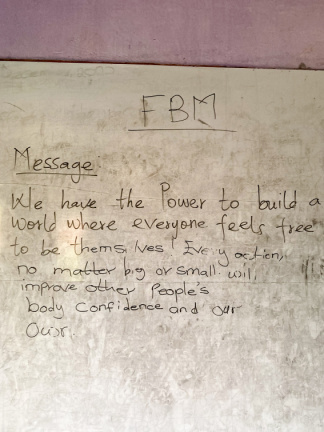 FBM
Message
We have the Power to build a
World where everyone feels free
to be themselves! Every action,
no matter big or small will
improve other People's
body Confidence and our
Own.